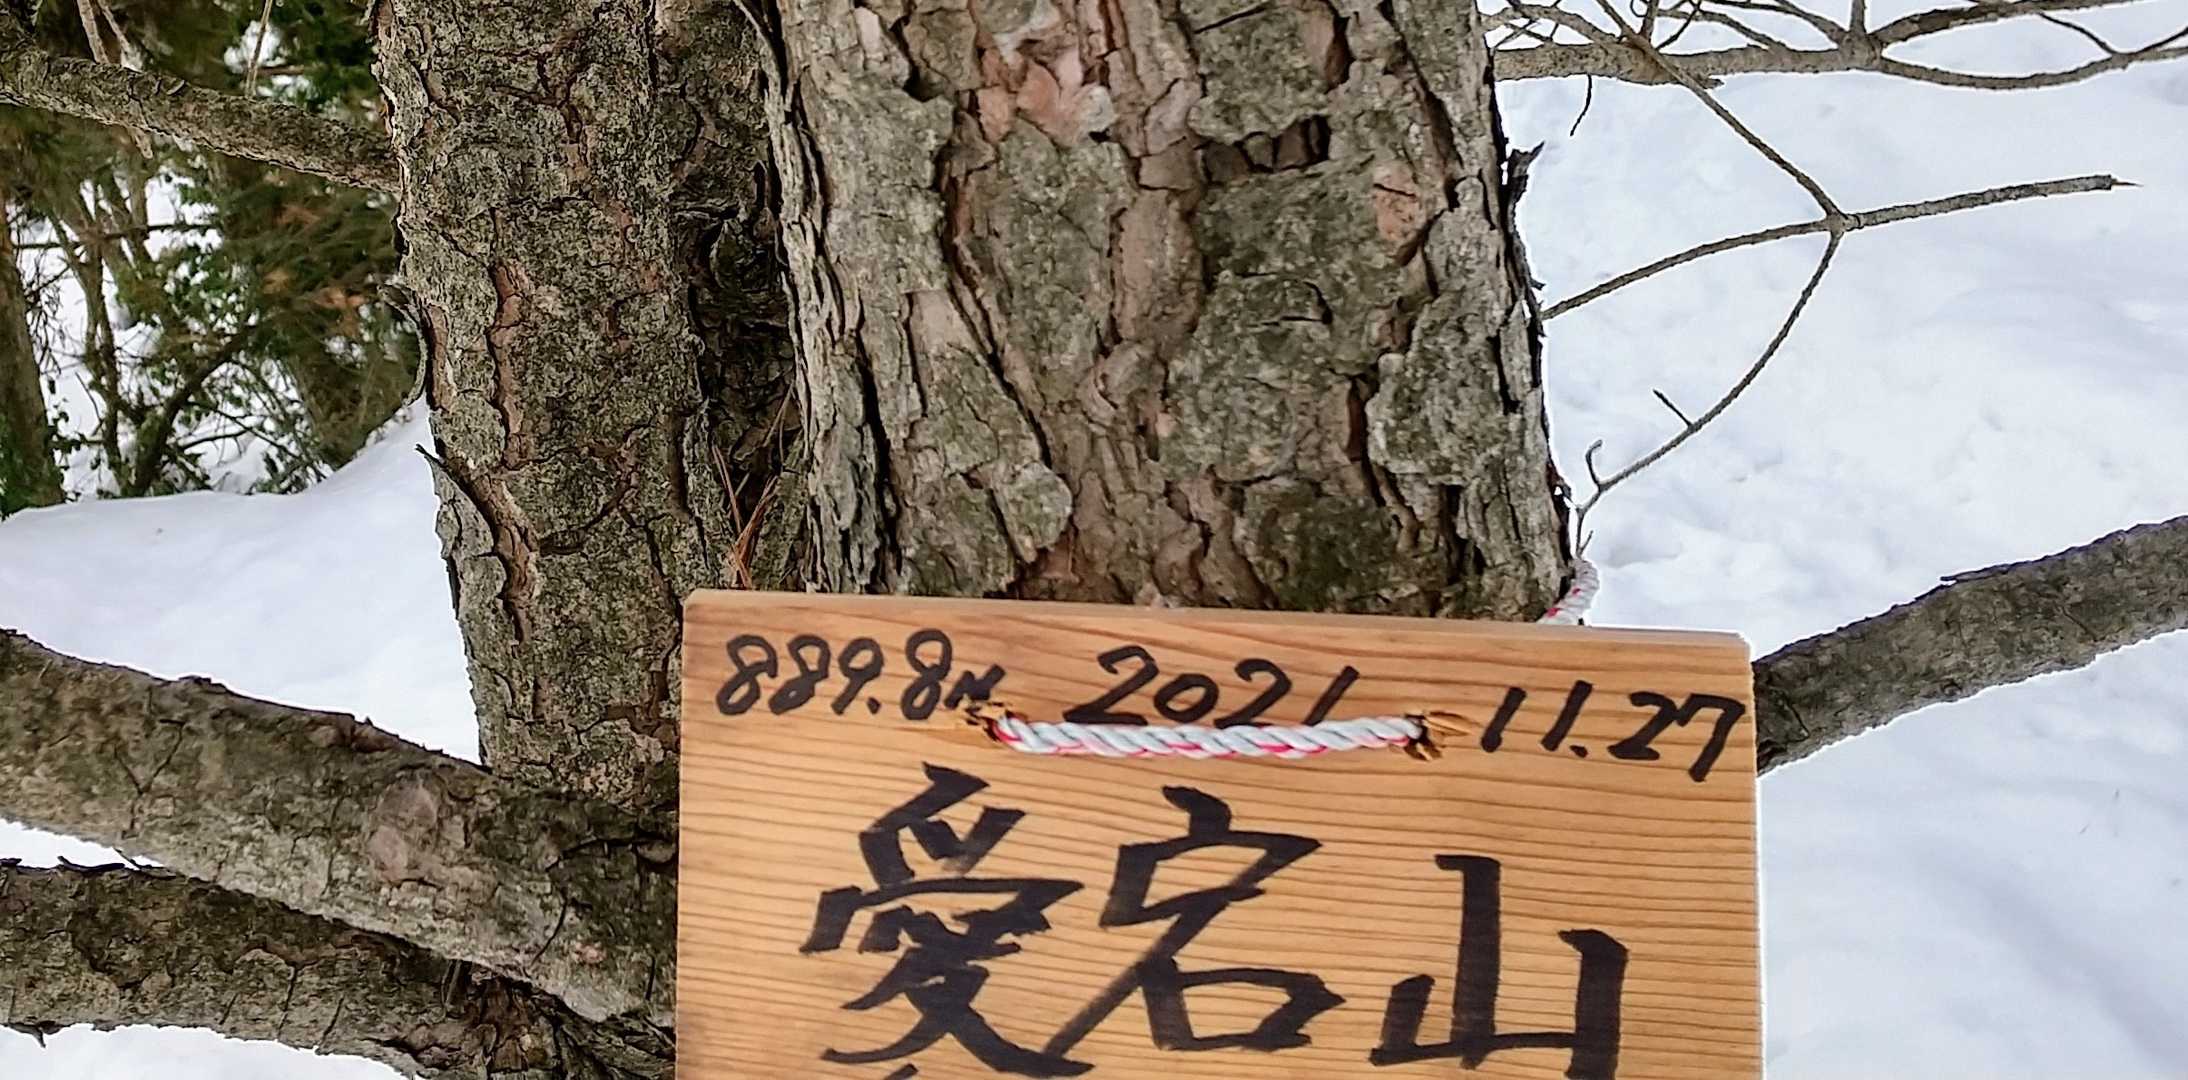 889.8M 2021 11.27
愛宕山